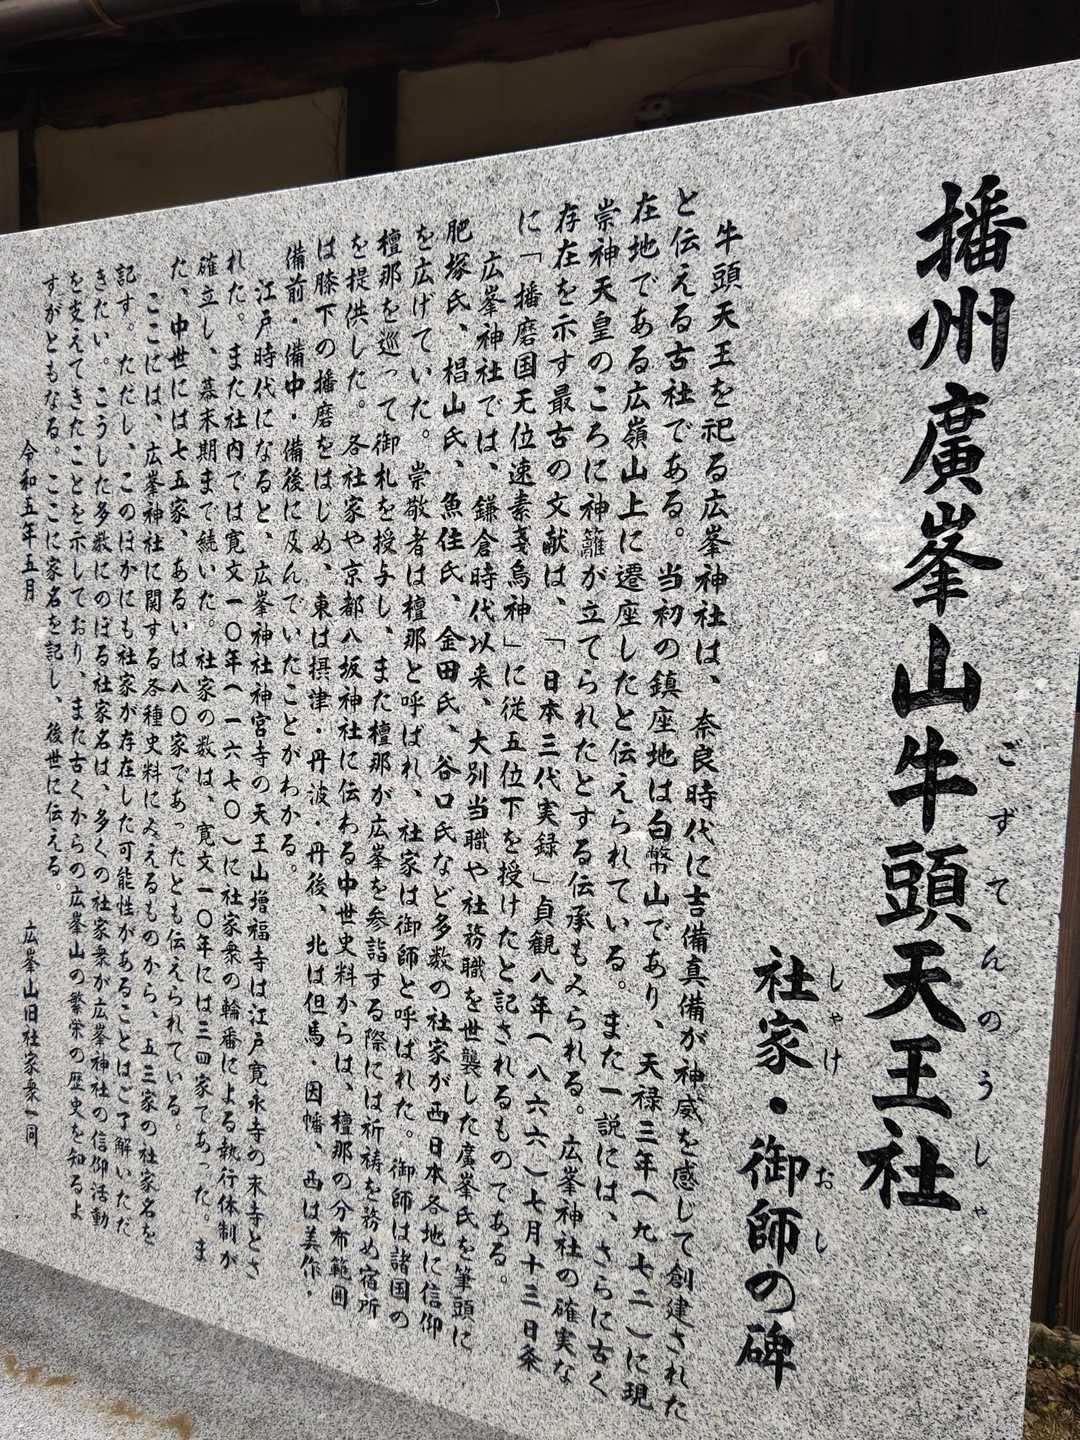 播州廣峯山牛頭天王社
ごずてんのうしゃ
社家・御師の碑
しゃけ おし
牛頭天王を祀る広峯神社は、奈良時代に吉備真備が神威を感じて創建された
と伝える古社である。当初の鎮座地は白幣山であり、天禄三年(九七二)に現
在地である広嶺山上に遷座したと伝えられている。また一説には、さらに古く
崇神天皇のころに神籬が立てられたとする伝承もみられる。広峯神社の確実な
存在を示す最古の文献は、「日本三代実録」貞観八年(八六六)七月十三日条
に「播磨国无位速素戔烏神」に従五位下を授けたと記されるものである。
広峯神社では、鎌倉時代以来、大別当職や社務職を世襲した廣峯氏を筆頭に
肥塚氏、椙山氏、魚住氏、金田氏、谷口氏など多数の社家が西日本各地に信仰
を広げていた。崇敬者は檀那と呼ばれ、社家は御師と呼ばれた。御師は諸国の
檀那を巡って御札を授与し、また檀那が広峯を参詣する際には祈祷を務め宿所
を提供した。各社家や京都八坂神社に伝わる中世史料からは、檀那の分布範囲
は膝下の播磨をはじめ、東は摂津・丹波・丹後、北は但馬・因幡、西は美作・
備前・備中・備後に及んでいたことがわかる。
江戸時代になると、広峯神社神宮寺の天王山増福寺は江戸寛永寺の末寺とさ
れた。また社内では寛文一〇年(一六七〇)に社家衆の輪番による執行体制が
確立し、幕末期まで続いた。社家の数は、寛文一〇年には三四家であった。ま
た、中世には七五家、あるいは八〇家であったとも伝えられている。
ここには、広峯神社に関する各種史料にみえるものから、五三家の社家名を
記す。ただし、このほかにも社家が存在した可能性があることはご了解いただ
きたい。こうした多数にのぼる社家名は、多くの社家衆が広峯神社の信仰活動
を支えてきたことを示しており、また古くからの広峯山の繁栄の歴史を知るよ
すがともなる。ここに家名を記し、後世に伝える。
令和五年五月 広峯山旧社家衆一同